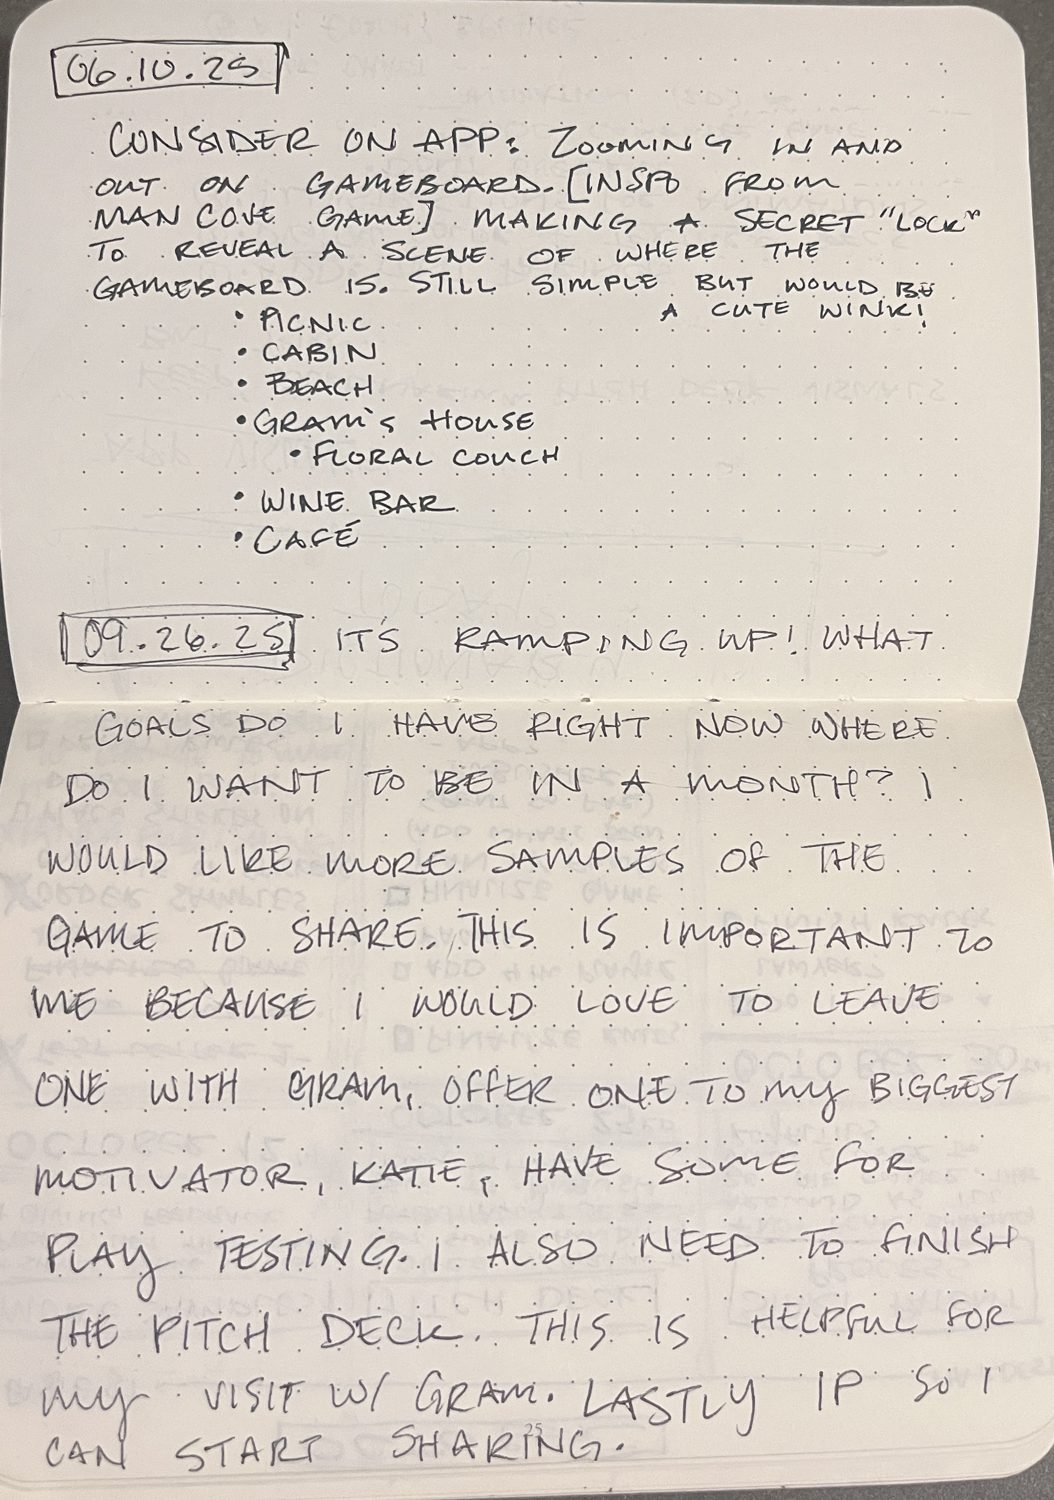 06.10.25
CONSIDER ON APP: ZOOMING IN AND
OUT ON GAMEBOARD. [INSPO FROM
MAN COVE GAME] MAKING A SECRET "LOCK"
TO REVEAL A SCENE OF WHERE THE
GAMEBOARD IS. STILL SIMPLE BUT WOULD BE
A CUTE WINK!
• PICNIC
• CABIN
• BEACH
• GRAM'S HOUSE
• FLORAL COUCH
• WINE BAR
• CAFÉ
09.26.25 IT'S RAMPING UP! WHAT
GOALS DO I HAVE RIGHT NOW WHERE
DO I WANT TO BE IN A MONTH? I
WOULD LIKE MORE SAMPLES OF THE
GAME TO SHARE. THIS IS IMPORTANT TO
ME BECAUSE I WOULD LOVE TO LEAVE
ONE WITH GRAM, OFFER ONE TO MY BIGGEST
MOTIVATOR, KATIE, HAVE SOME FOR
PLAY TESTING. I ALSO NEED TO FINISH
THE PITCH DECK. THIS IS HELPFUL FOR
MY VISIT W/ GRAM. LASTLY IP SO I
CAN START SHARING.
25